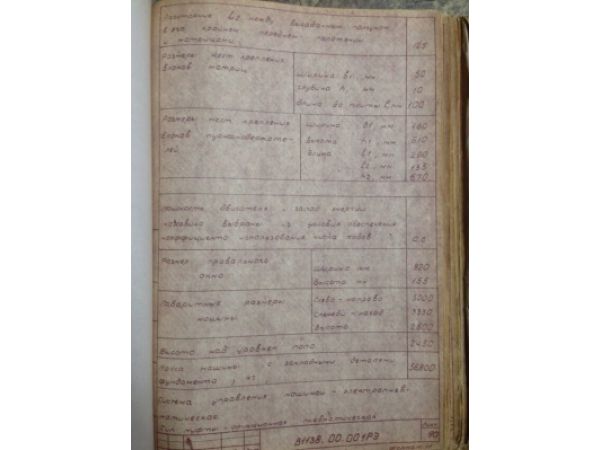 Расстояние L2 между
в его крайнем переднем положении
и матрицами 125
Размеры мест крепления
блоков матриц
Ширина В1, мм 50
глубина h, мм 10
длина по плиты мм 100
Размеры мест крепления
блоков
лей
Ширина В1, мм 180
Высота h1, мм 610
Длина l1, мм 200
l2, мм 135
h2, мм 670
Мощность двигателя и запас энергии
маховика выбраны из условия обеспечения
коэффициента использования числа ходов
Размер провального
окна
Ширина мм 820
Высота мм 155
Габаритные размеры
машины
Слева-направо 3000
Спереди-назад
Высота 2800
Высота над уровнем пола 2450
Масса машины с закладными деталями
фундамента, кг 56800
Система управления машиной - электропнев-
матическая
Тип муфты - фрикционная пневматическая
В1138.00.001РЭ
Лист
10